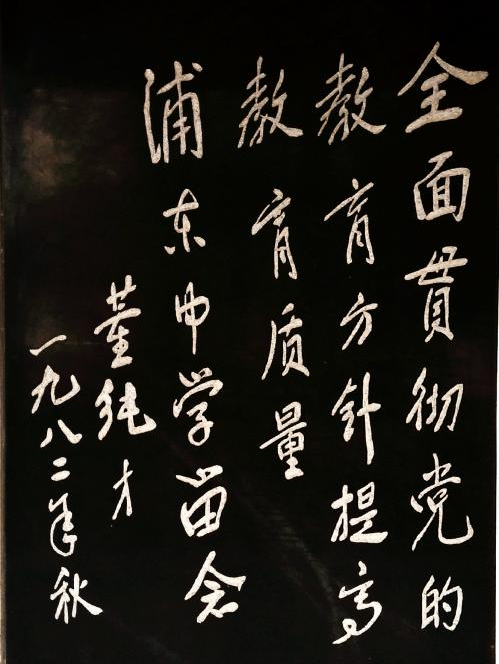 全面贯彻党的
教育方针提高
教育质量
浦东中学留念
董纯才
一九八二年秋